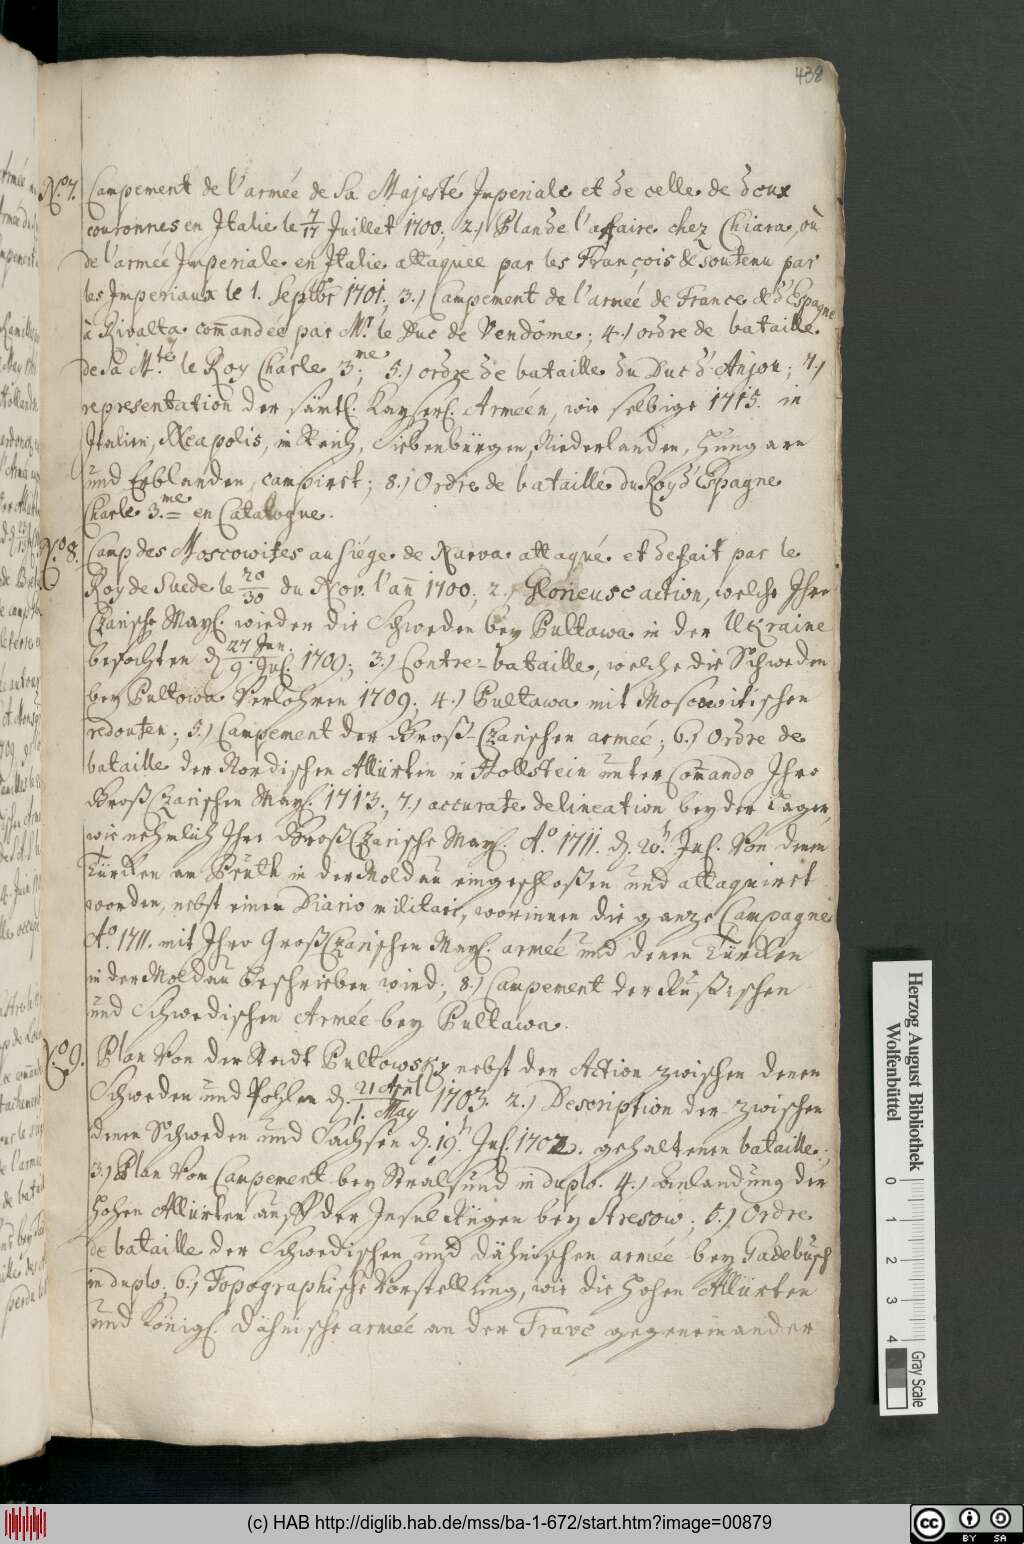 438
No 7. Campement de l'armée de Sa Majesté Imperiale et de celle de deux
couronnes en Italie le 7/17 Juillet 1700; 2.) Plan de l'affaire chez Chiara, où
de l'armée Imperiale en Italie attaquee par les François & soutenu par
les Imperiaux le 1. Septbr 1701; 3.) Campement de l'armée de France & d'Espagne
à Rivalta commandée par Mr. le Duc de Vendôme; 4.) ordre de bataille
de Sa M.té le Roy Charle 3me; 5.) ordre de bataille du Duc d'Anjou; 7.)
representation der sämtl. Kayserl. Arméen, wie selbige 1715. in
Italien, Neapolis, im Reich, Siebenbürgen, Niederlanden, Hungarn
und Erblanden, campirt; 8.) Ordre de bataille du Roy d'Espagne
Charle 3.me en Catalogne.
No 8. Camp des Moscowites au siége de Narva attaqué et defait par le
Roy de Suede le 20/30 du Nov. l'an 1700; 2.) Glorieuse action, welche Ihro
Czarische Mayl. wieder die Schweden bey Pultawa in der Ukraine
befochten d. 27 Jun./9. Jul. 1709; 3.) Contre-bataille, welche die Schweden
bey Pultowa verlohren 1709; 4.) Pultawa mit Moscowitischen
redouten; 5.) Campement der Groß-Czarischen armée; 6.) Ordre de
bataille der Nordischen Alliirten in Hollstein unter Comando Ihro
Groß Czarischen Mayl. 1713; 7.) accurate delineation beyder Lager,
wie nehmlich Ihro Groß Czarische Mayl. Ao. 1711. d. 20. Jul. von denen
Türcken am Pruth in der Moldau eingeschloßen und attaquiret
worden, nebst einem Diario militari, worinnen die ganze Campagne
Ao. 1711. mit Ihro Groß Czarischen Mayl. armée und denen Türcken
in der Moldau beschrieben wird; 8.) Campement der Rußischen
und Schwedischen Armée bey Pultawa.
No 9. Plan von der Stadt Pultowsky nebst der Action zwischen denen
Schweden und Pohlen d. 21 April/1. May 1703. 2.) Description der zwischen
denen Schweden und Sachsen d. 19. Jul. 1702. gehaltenen bataille;
3.) Plan vom Campement bey Stralsund in duplo. 4.) Anlandung der
Hohen Alliirten auff der Insul Rügen bey Stresow; 5.) Ordre
de bataille der Schwedischen und Dähnischen armée bey Gadebusch
in duplo; 6.) Topographische Vorstellung, wie die Hohen Alliirten
und Königl. Dähnische armée an der Trave gegeneinander
Herzog August Bibliothek
Wolfenbüttel
0 1 2 3 4
Gray Scale
(c) HAB http://diglib.hab.de/mss/ba-1-672/start.htm?image=00879
cc BY SA